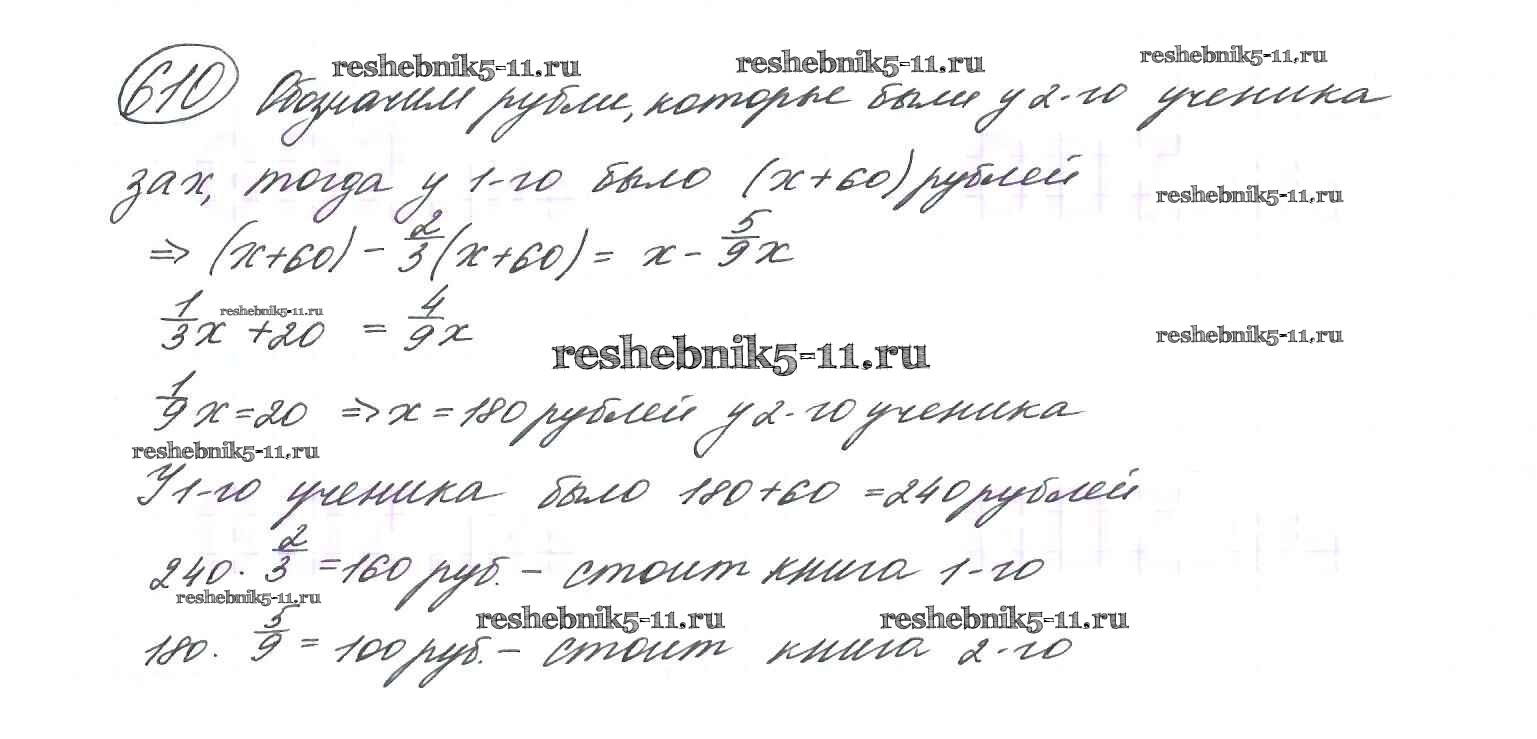 reshebnik5-11.ru reshebnik5-11.ru reshebnik5-11.ru
610 Обозначим рубли, которые были у 2-го ученика
за x, тогда у 1-го было (x+60) рублей
reshebnik5-11.ru
⇒ (x+60) - 2/3 (x+60) = x - 5/9 x
reshebnik5-11.ru
1/3 x + 20 = 4/9 x
reshebnik5-11.ru reshebnik5-11.ru
1/9 x = 20 ⇒ x = 180 рублей у 2-го ученика
reshebnik5-11.ru
У 1-го ученика было 180+60 = 240 рублей
240 · 2/3 = 160 руб. - стоит книга 1-го
reshebnik5-11.ru reshebnik5-11.ru reshebnik5-11.ru
180 · 5/9 = 100 руб. - стоит книга 2-го